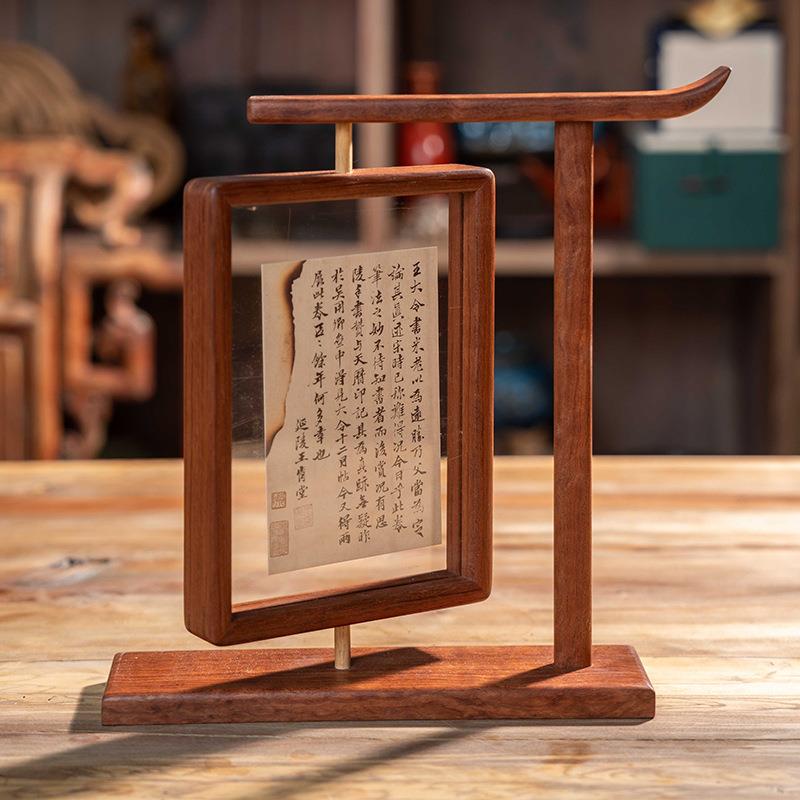 王大令書米老以為遠勝乃父當為定
論其真迹宋時已称難得况今日乎此卷
筆法之妙不待知書者而後賞况有思
陵手書贊与天曆印記其為真跡無疑昨
於吳用卿中得見大令十二月帖今又得兩
展此卷區〻餘年何多幸也
延陵王肯堂